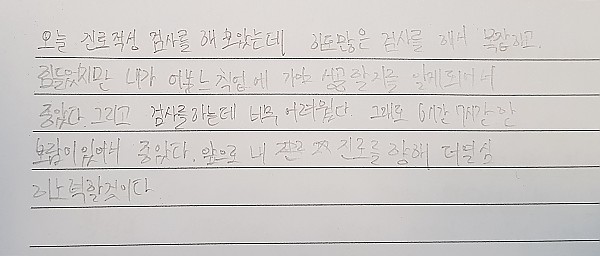 오늘 진로적성 검사를 해 보았는데 하도많은 검사를 해서 복잡하고.
힘들었지만 내가 어느 직업에 가야 성공할지를 알게되어서
좋았다. 그리고 검사를하는데 너무 어려웠다. 그래도 6시간 7시간 한
보람이있어서 좋았다. 앞으로 내 진로를 향해 더열심
히노력할것이다